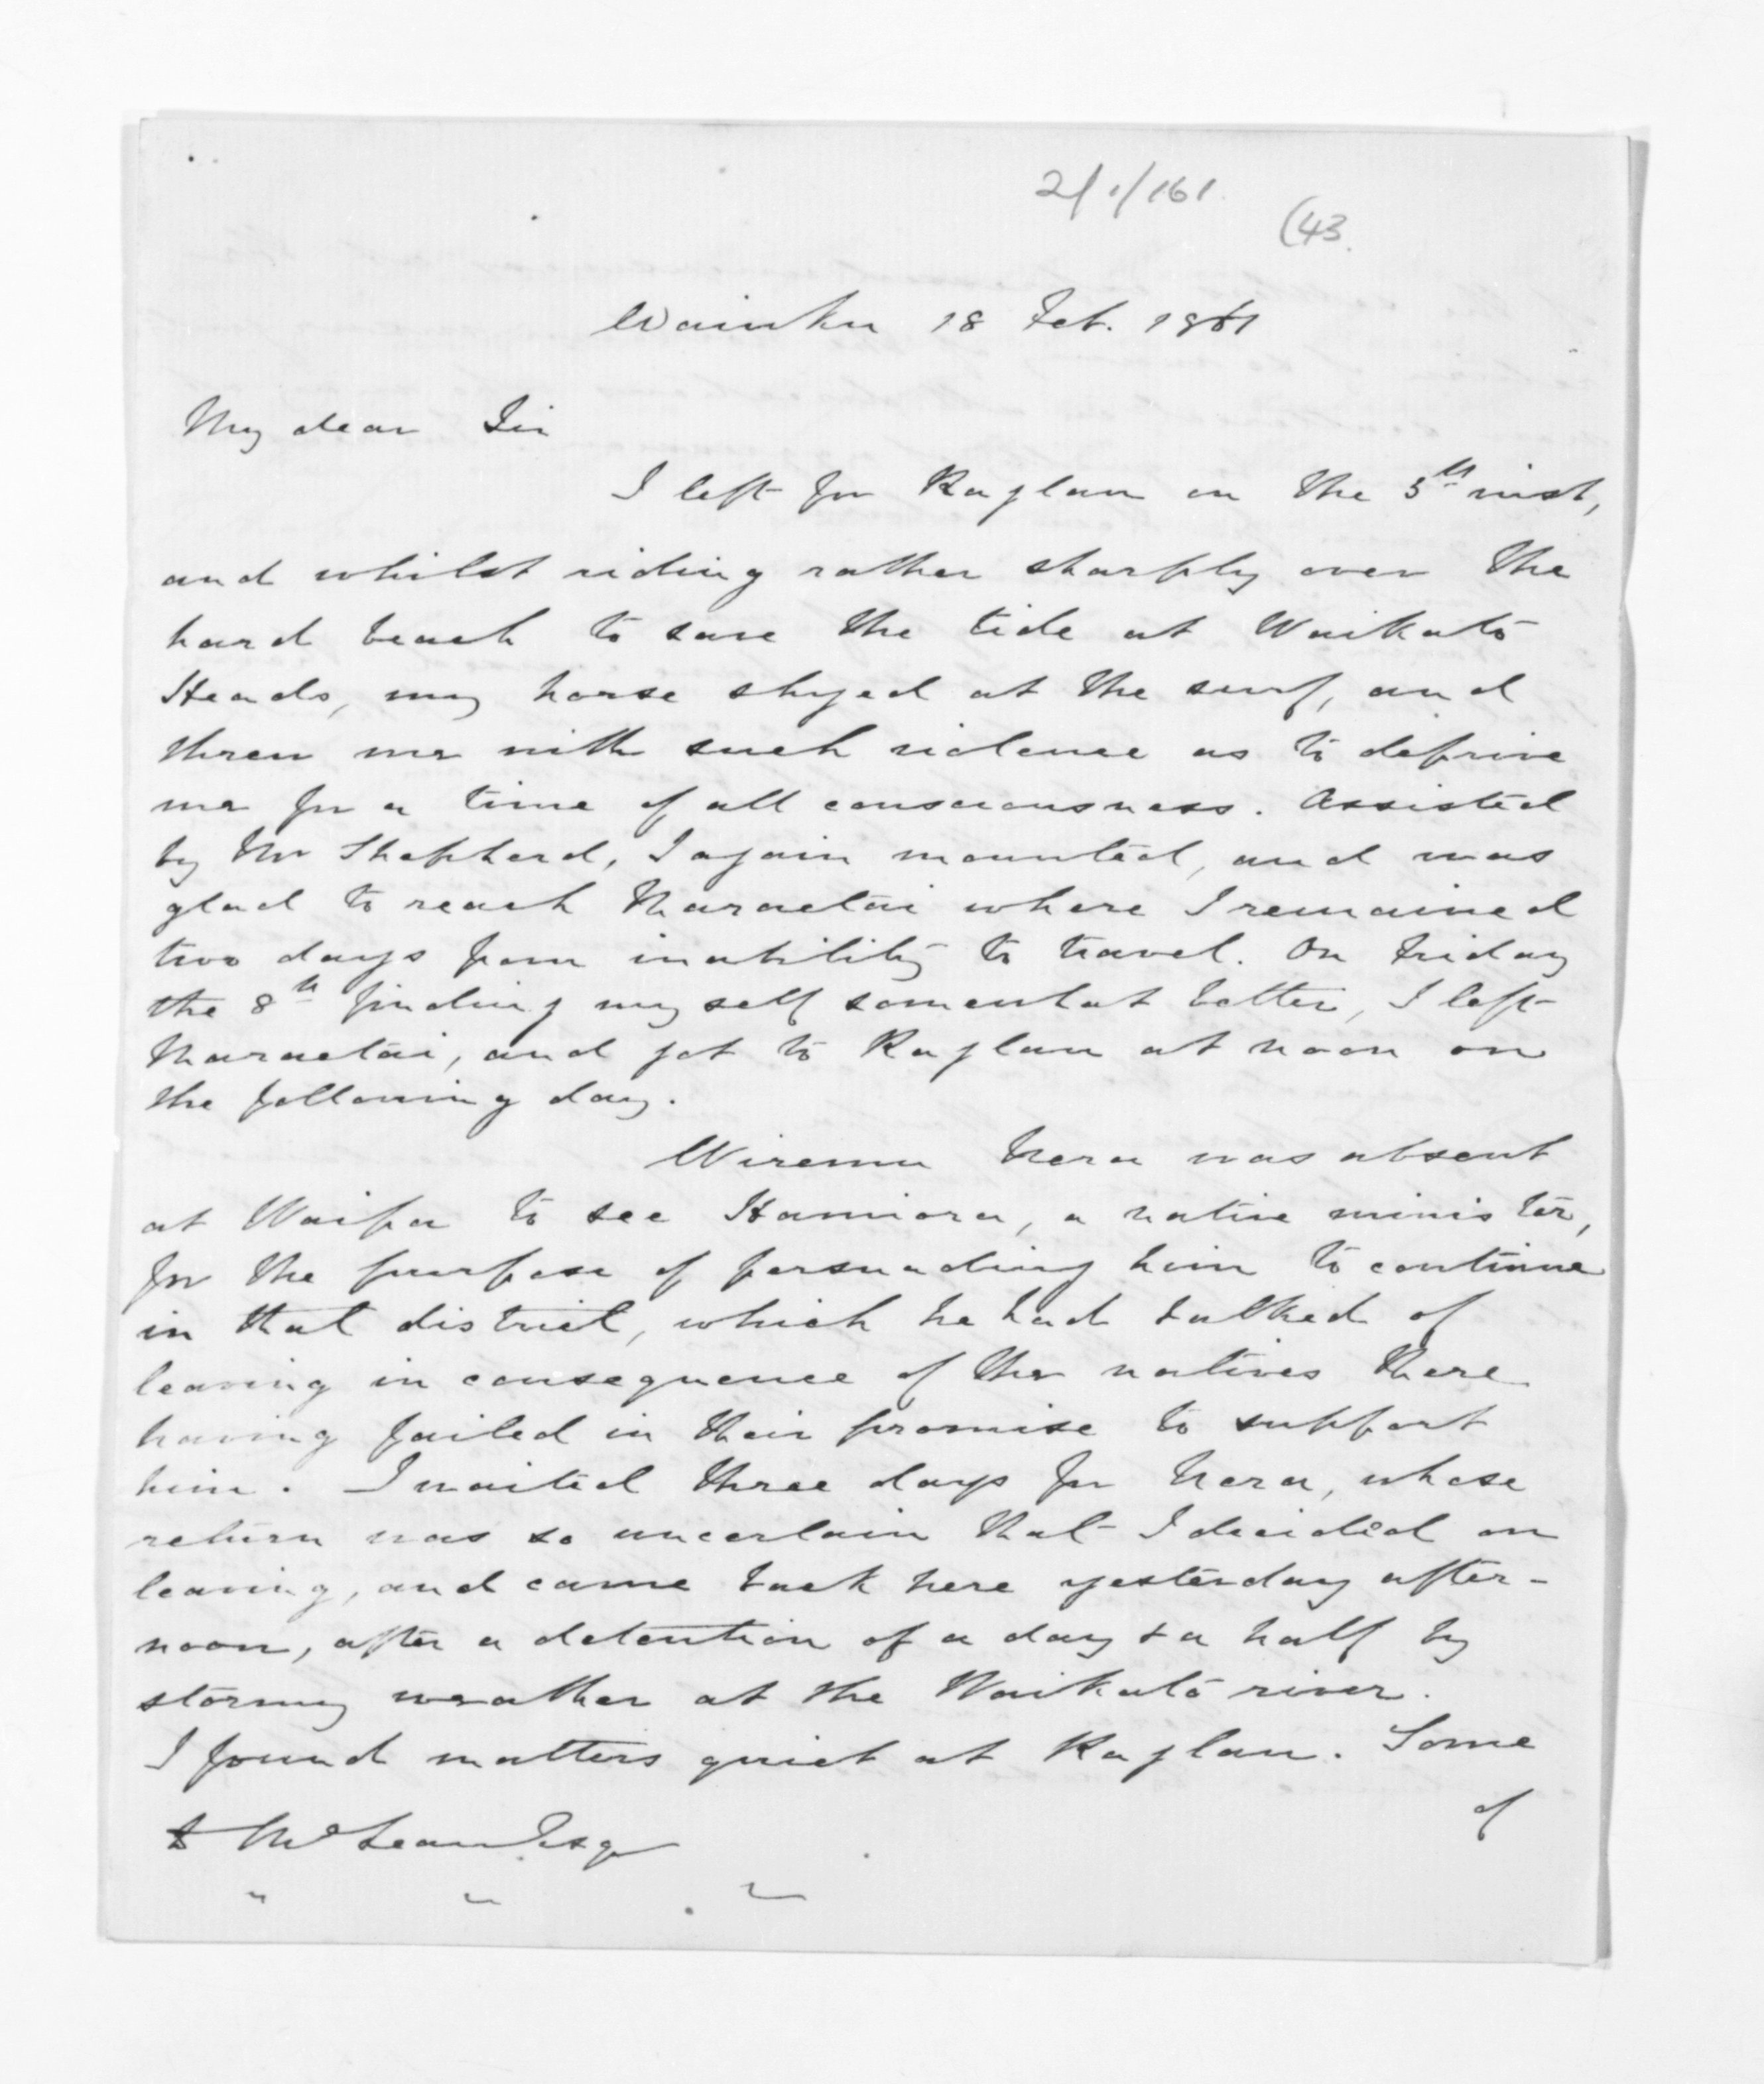 2/1/161
(43.
Waiuku 18 Feb. 1861
My dear Sir
I left for Raglan on the 5th inst,
and whilst riding rather sharply over the
hard beach to save the tide at Waikato
Heads, my horse shyed at the surf, and
threw me with such violence as to deprive
me for a time of all consciousness. Assisted
by Mr Shepherd, I again mounted, and was
glad to reach Maraetai where I remained
two days from inability to travel. On Friday
the 8th finding myself somewhat better, I left
Maraetai, and got to Raglan at noon on
the following day.
Wiremu Nera was absent
at Waipa to see Hamiora, a native minister,
for the purpose of persuading him to continue
in that district, which he had talked of
leaving in consequence of the natives there
having failed in their promise to support
him. I waited three days for Nera, whose
return was so uncertain that I decided on
leaving, and came back here yesterday after-
noon, after a detention of a day & a half by
stormy weather at the Waikato river.
I found matters quiet at Raglan. Some
of
D McLean Esq
" " "